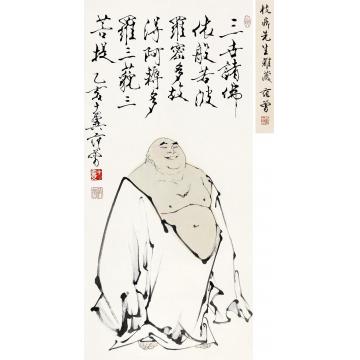 三世諸佛
依般若波
羅密多故
得阿耨多
羅三藐三
菩提 乙亥十翼范曾
先生雅藏 范曾